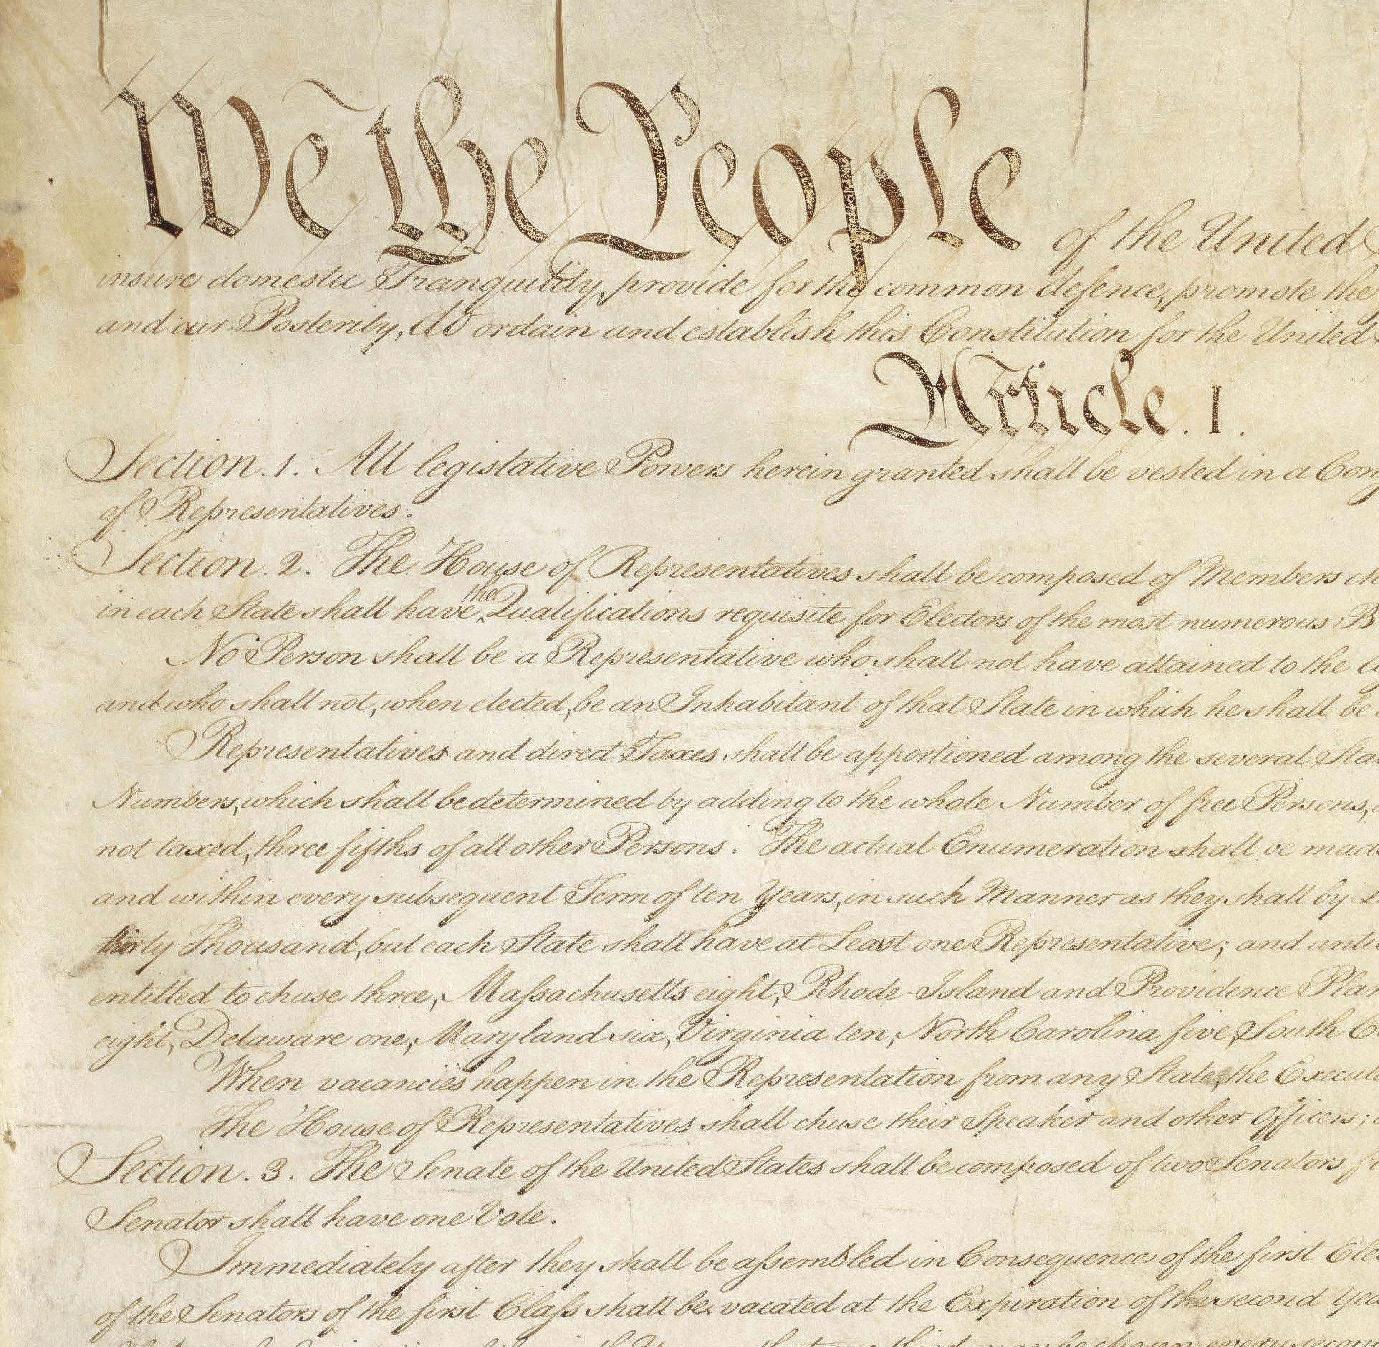 We the People of the United
insure domestic Tranquility, provide for the common defence, promote the
and our Posterity, do ordain and establish this Constitution for the United
Article. I.
Section. 1. All legislative Powers herein granted shall be vested in a Cong
of Representatives.
Section. 2. The House of Representatives shall be composed of Members ch
in each State shall have the Qualifications requisite for Electors of the most numerous B
No Person shall be a Representative who shall not have attained to the
and who shall not, when elected, be an Inhabitant of that State in which he shall be
Representatives and direct Taxes shall be apportioned among the several Sta
Numbers, which shall be determined by adding to the whole Number of free Persons,
not taxed, three fifths of all other Persons. The actual Enumeration shall be made
and within every subsequent Term of ten Years, in such Manner as they shall by
thirty Thousand, but each State shall have at Least one Representative; and unti
entitled to chuse three, Massachusetts eight, Rhode-Island and Providence Plan
eight, Delaware one, Maryland six, Virginia ten, North Carolina five, South C
When vacancies happen in the Representation from any State, the Executi
The House of Representatives shall chuse their Speaker and other Officers;
Section. 3. The Senate of the United States shall be composed of two Senators f
Senator shall have one Vote.
Immediately after they shall be assembled in Consequence of the first Ele
of the Senators of the first Class shall be vacated at the Expiration of the second Yea